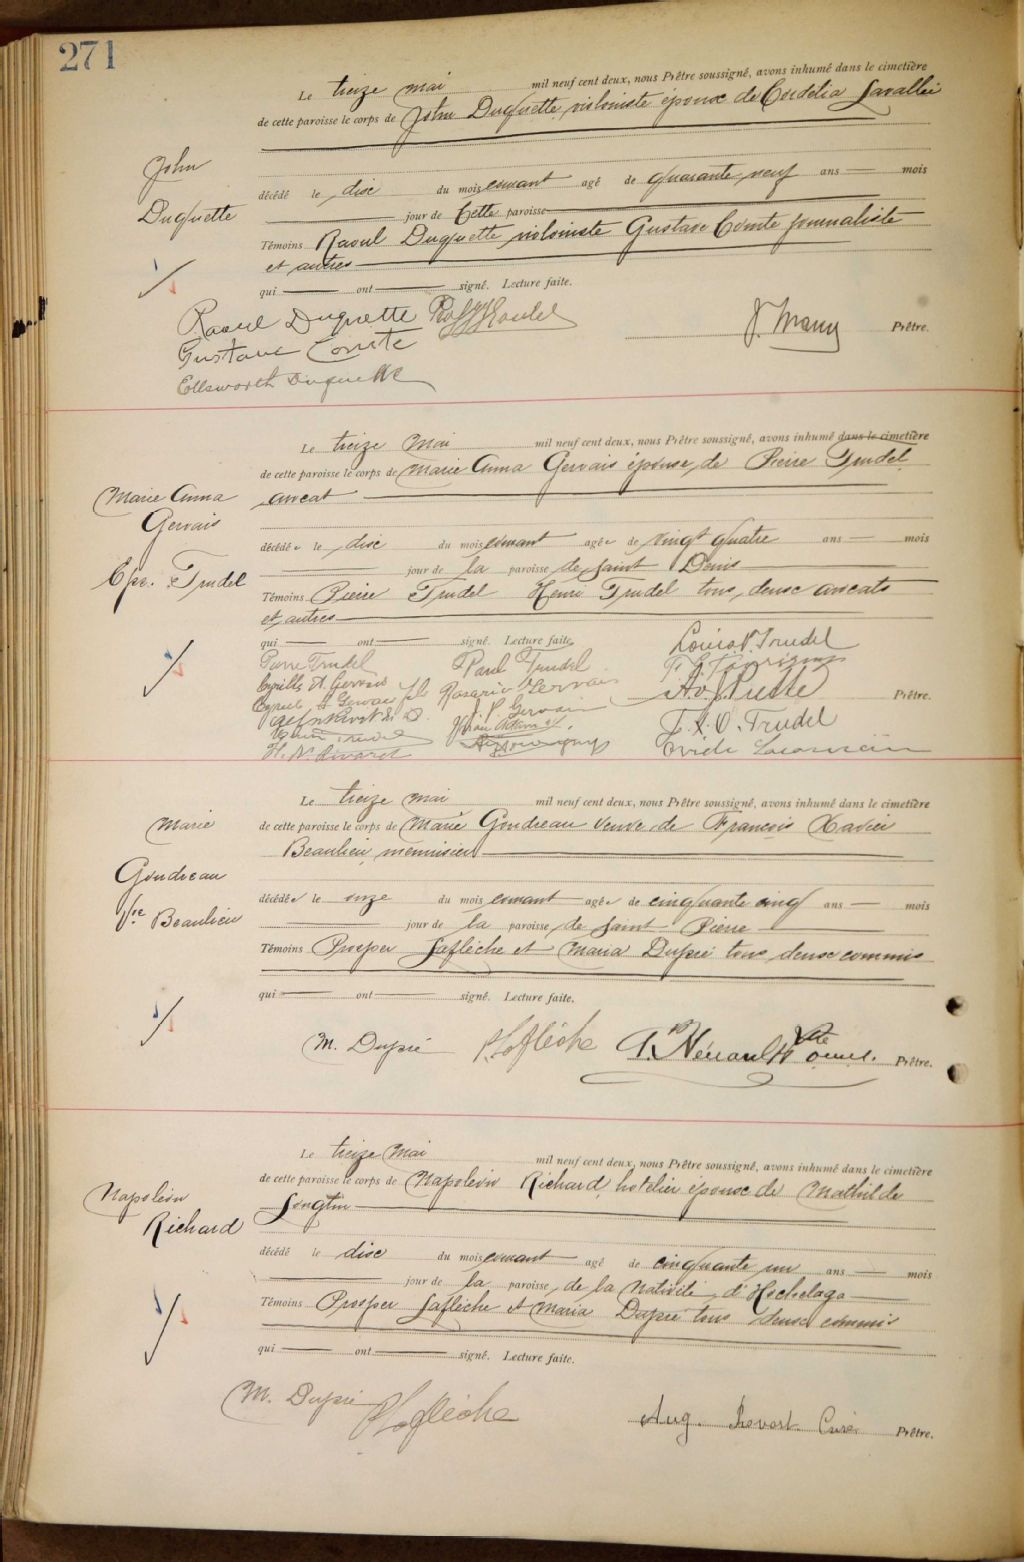 271
Le treize mai mil neuf cent deux, nous Prêtre soussigné, avons inhumé dans le cimetière
de cette paroisse le corps de John Duquette violoniste époux de Cordelia Lavallée
John
Duquette
décédé le dix du mois courant agé de quarante neuf ans mois
jour de Cette paroisse
Témoins Raoul Duquette violoniste Gustave Comte journaliste
et autres
qui ont signé. Lecture faite.
Raoul Duquette
Gustave Comte
J. Many Prêtre.
Ellsworth Duquette
Le treize Mai mil neuf cent deux, nous Prêtre soussigné, avons inhumé dans le cimetière
de cette paroisse le corps de Marie Anna Gervais épouse de Pierre Trudel
avocat
Marie Anna
Gervais
Epse. Trudel
décédée le dix du mois courant agée de vingt quatre ans mois
jour de la paroisse de Saint Denis
Témoins Pierre Trudel Henri Trudel tous deux avocats
et autres
qui ont signé. Lecture faite.
Pierre Trudel Paul Trudel Louis Trudel
Cyrille A. Gervais Rosario Gervais
J. P. Gervais Prêtre.
Henri Trudel F. X. O. Trudel
H. N. Rivard
Le treize mai mil neuf cent deux, nous Prêtre soussigné, avons inhumé dans le cimetière
de cette paroisse le corps de Marie Goudreau veuve de François Xavier
Beaulieu, menuisier
Marie
Goudreau
Vve Beaulieu
décédée le onze du mois courant agée de cinquante cinq ans mois
jour de la paroisse de Saint Pierre
Témoins Prosper Laflèche et Maria Dupré tous deux commis
qui ont signé. Lecture faite.
M. Dupré P. Laflèche Hérault Ptre Prêtre.
Le treize Mai mil neuf cent deux, nous Prêtre soussigné, avons inhumé dans le cimetière
de cette paroisse le corps de Napoléon Richard, hotelier époux de Mathilde
Longtin
Napoléon
Richard
décédé le dix du mois courant agé de cinquante un ans mois
jour de la paroisse de la Nativité d'Hochelaga
Témoins Prosper Laflèche et Maria Dupré tous deux commis
qui ont signé. Lecture faite.
M. Dupré P. Laflèche
Aug. Prevost Curé Prêtre.